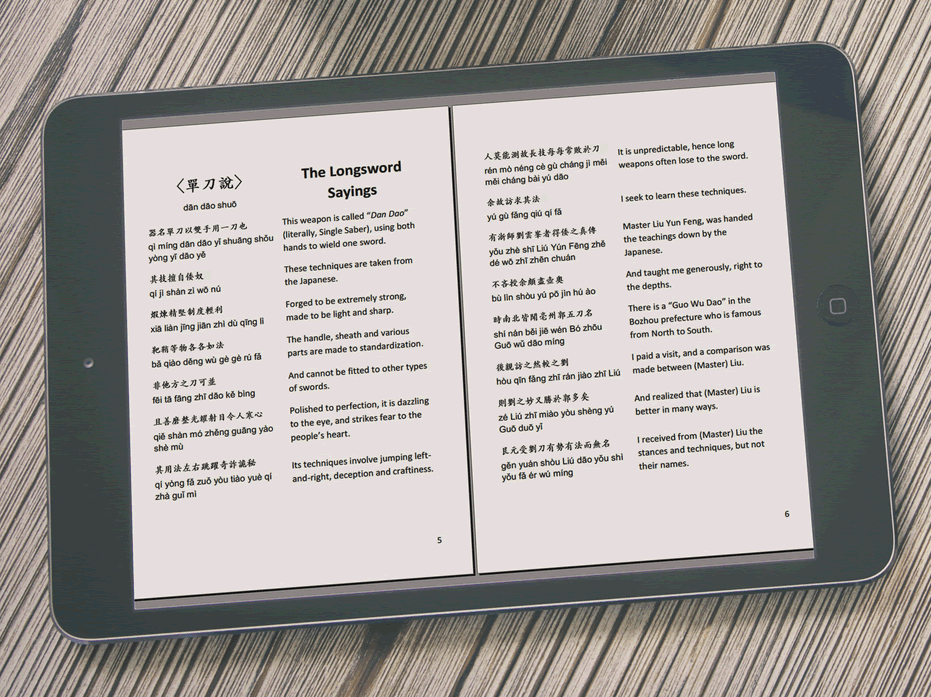 〈單刀說〉
dān dāo shuō
器名單刀以雙手用一刀也
qì míng dān dāo yǐ shuāng shǒu
yòng yī dāo yě
其技擅自倭奴
qí jì shàn zì wō nú
煅煉精堅制度輕利
xiā liàn jīng jiān zhì dù qīng lì
靶鞘等物各各如法
bǎ qiào děng wù gè gè rú fǎ
非他方之刀可並
fēi tā fāng zhī dāo kě bìng
且善磨整光耀射日令人寒心
qiě shàn mó zhěng guāng yào
shè mù
其用法左右跳躍奇詐詭秘
qí yòng fǎ zuǒ yòu tiào yuè qí
zhà guǐ mì
The Longsword
Sayings
This weapon is called “Dan Dao”
(literally, Single Saber), using both
hands to wield one sword.
These techniques are taken from
the Japanese.
Forged to be extremely strong,
made to be light and sharp.
The handle, sheath and various
parts are made to standardization.
And cannot be fitted to other types
of swords.
Polished to perfection, it is dazzling
to the eye, and strikes fear to the
people’s heart.
Its techniques involve jumping left-
and-right, deception and craftiness.
5
人莫能測故長技每每常敗於刀
rén mò néng cè gù cháng jì měi
měi cháng bài yú dāo
余故訪求其法
yú gù fǎng qiú qí fǎ
有浙師劉雲峯者得倭之真傳
yǒu zhè shī Liú Yún Fēng zhě
dé wō zhī zhēn chuán
不吝授余頗盡壺奧
bù lìn shòu yú pō jìn hú ào
時南北皆聞亳州郭五刀名
shí nán běi jiē wén Bó zhōu
Guō wǔ dāo míng
後親訪之然較之劉
hòu qīn fǎng zhī rán jiào zhī Liú
則劉之妙又勝於郭多矣
zé Liú zhī miào yòu shèng yú
Guō duō yǐ
艮元受劉刀有勢有法而無名
gěn yuán shòu Liú dāo yǒu shì
yǒu fǎ ér wú míng
It is unpredictable, hence long
weapons often lose to the sword.
I seek to learn these techniques.
Master Liu Yun Feng, was handed
the teachings down by the
Japanese.
And taught me generously, right to
the depths.
There is a “Guo Wu Dao” in the
Bozhou prefecture who is famous
from North to South.
I paid a visit, and a comparison was
made between (Master) Liu.
And realized that (Master) Liu is
better in many ways.
I received from (Master) Liu the
stances and techniques, but not
their names.
6